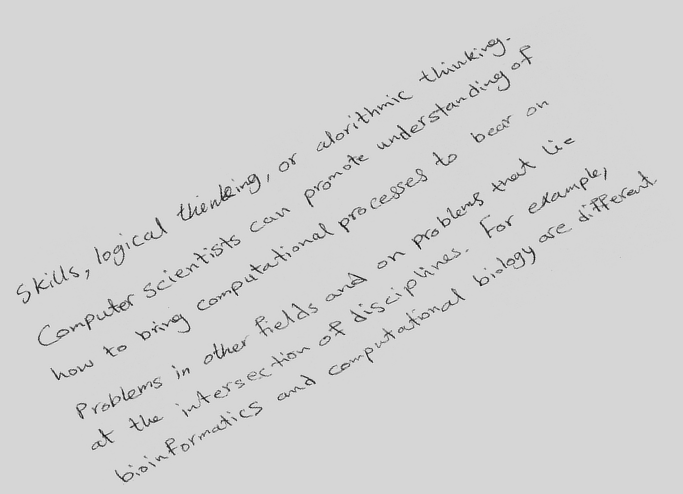 Skills, logical thinking, or alorithmic thinking.
Computer scientists can promote understanding of
how to bring computational processes to bear on
Problems in other fields and on problems that lie
at the intersection of disciplines. For example,
bioinformatics and computational biology are different